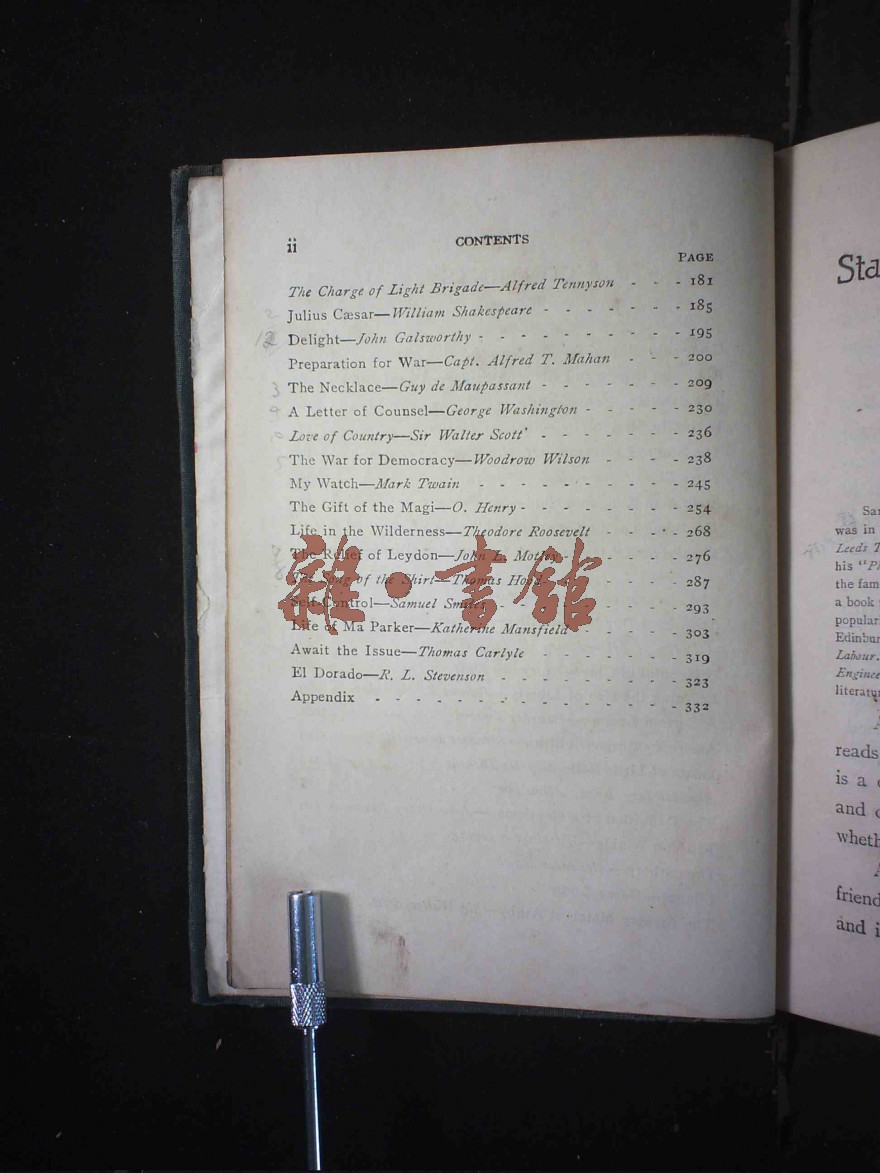 ii CONTENTS
PAGE
The Charge of Light Brigade—Alfred Tennyson - - - 181
Julius Cæsar—William Shakespeare - - - - - - - 185
Delight—John Galsworthy - - - - - - - - - - 195
Preparation for War—Capt. Alfred T. Mahan - - - 200
The Necklace—Guy de Maupassant - - - - - - - 209
A Letter of Counsel—George Washington - - - - - 230
Love of Country—Sir Walter Scott - - - - - - - 236
The War for Democracy—Woodrow Wilson - - - - 238
My Watch—Mark Twain - - - - - - - - - - 245
The Gift of the Magi—O. Henry - - - - - - - - 254
Life in the Wilderness—Theodore Roosevelt - - - - 268
The Relief of Leydon—John L. Motley - - - - - - 276
The Song of the Shirt—Thomas Hood - - - - - 287
Self-Control—Samuel Smiles - - - - - - - - 293
Life of Ma Parker—Katherine Mansfield - - - - 303
Await the Issue—Thomas Carlyle - - - - - - - 319
El Dorado—R. L. Stevenson - - - - - - - - 323
Appendix - - - - - - - - - - - - - - 332
雜·書館
Sta
was in
Leeds
his
the fam
a book
popular
Edinbur
Labour.
Enginee
literatu
reads
is a
and
wheth
friend
and i